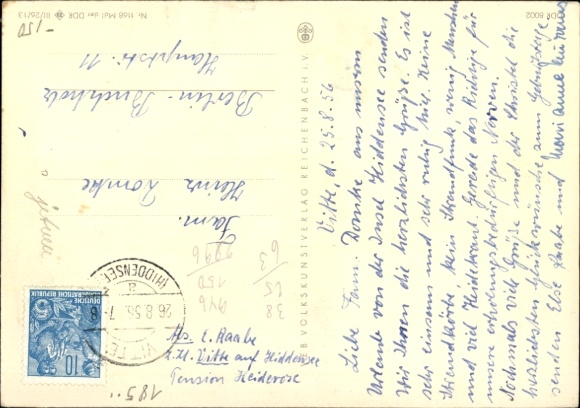 Vitte, d. 25.8.56
Liebe Fam. Domke aus unserm
Urlaube von der Insel Hiddensee senden
Wir Ihnen die herzlichsten Grüße. Es ist
sehr einsam und sehr ruhig hier. Keine
Strandkörbe, kein Strandfunk, wenig Menschen
und viel Heidekraut. Gerade das Richtige für
unsere erholungsbedürftigen Nerven.
Nochmals viel Grüße und der Christel die
herzlichsten Glückwünsche zum Geburtstage
senden Else Raabe und
Fam.
Heinz Domke
Berlin-Buchholz
Hauptstr. 11
Abs. E. Raabe
z.Zt. Vitte auf Hiddensee
Pension Heiderose
VITTE
(HIDDENSEE)
26.8.56.7-8
a
DEUTSCHE
DEMOKRATISCHE REPUBLIK
10
VOLKSKUNSTVERLAG REICHENBACH I.V.
Nr. 1168 Mal der DDR III/26/13
DDR 8002
-150
185
63
38
150
946